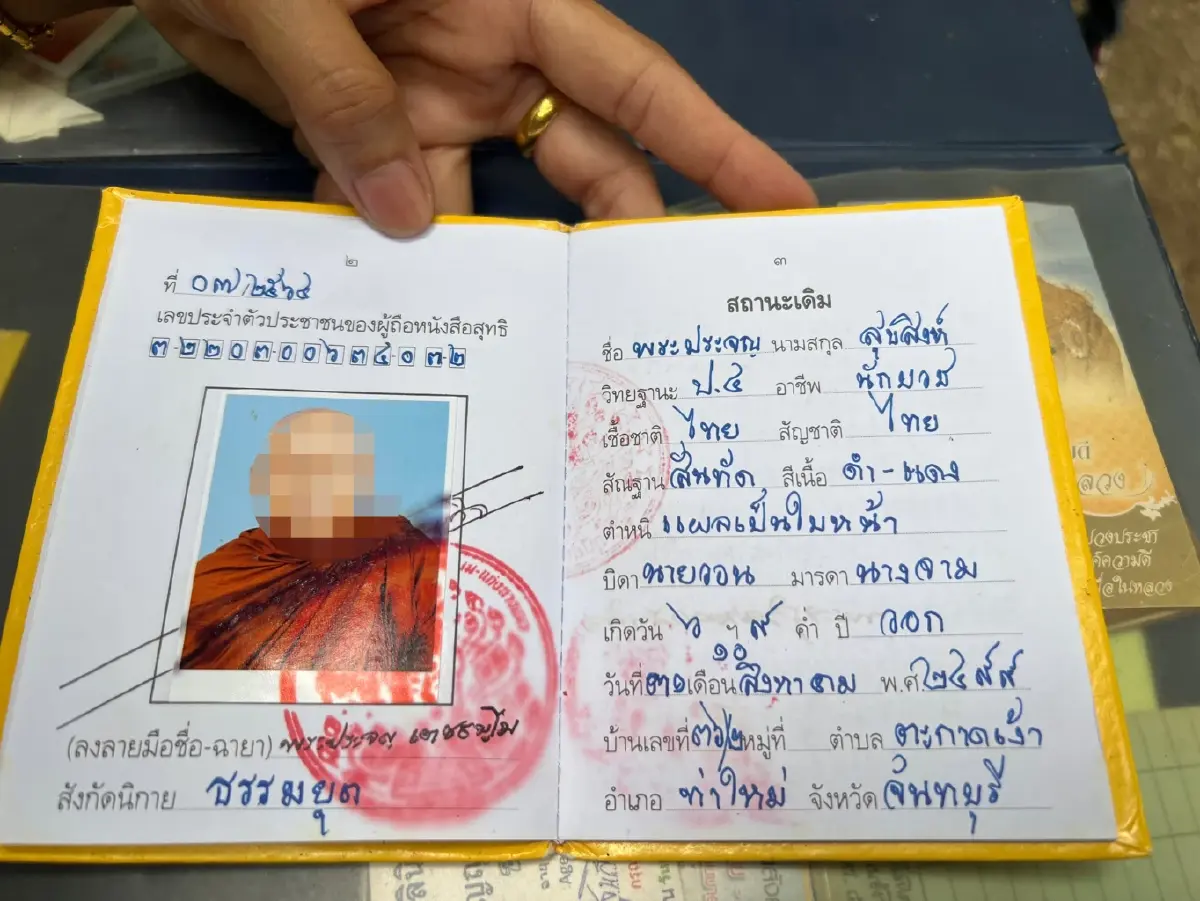 ๒
ที่ ๐๗/๒๕๖๔
เลขประจำตัวประชาชนของผู้ถือหนังสือสุทธิ
๓-๒๒๐๓-๐๐๖๓๔-๐ ๓-๒
(ลงลายมือชื่อ-ฉายา) พระประจญ
สังกัดนิกาย ธรรมยุต
๓
สถานะเดิม
ชื่อ พระประจญ นามสกุล สุขสิงห์
วิทยฐานะ ป.๔ อาชีพ นักบวช
เชื้อชาติ ไทย สัญชาติ ไทย
สัณฐาน สันทัด สีเนื้อ ดำ-แดง
ตำหนิ แผลเป็นใบหน้า
บิดา นายวอน มารดา นางจาม
เกิดวัน ๖ ฯ ๙ ค่ำ ปี วอก
๑๐
วันที่ ๓๑ เดือน สิงหาคม พ.ศ. ๒๔๙๙
บ้านเลขที่ ๓๖/๒ หมู่ที่ ตำบล ตะกาดเง้า
อำเภอ ท่าใหม่ จังหวัด จันทบุรี
ปวงประชา